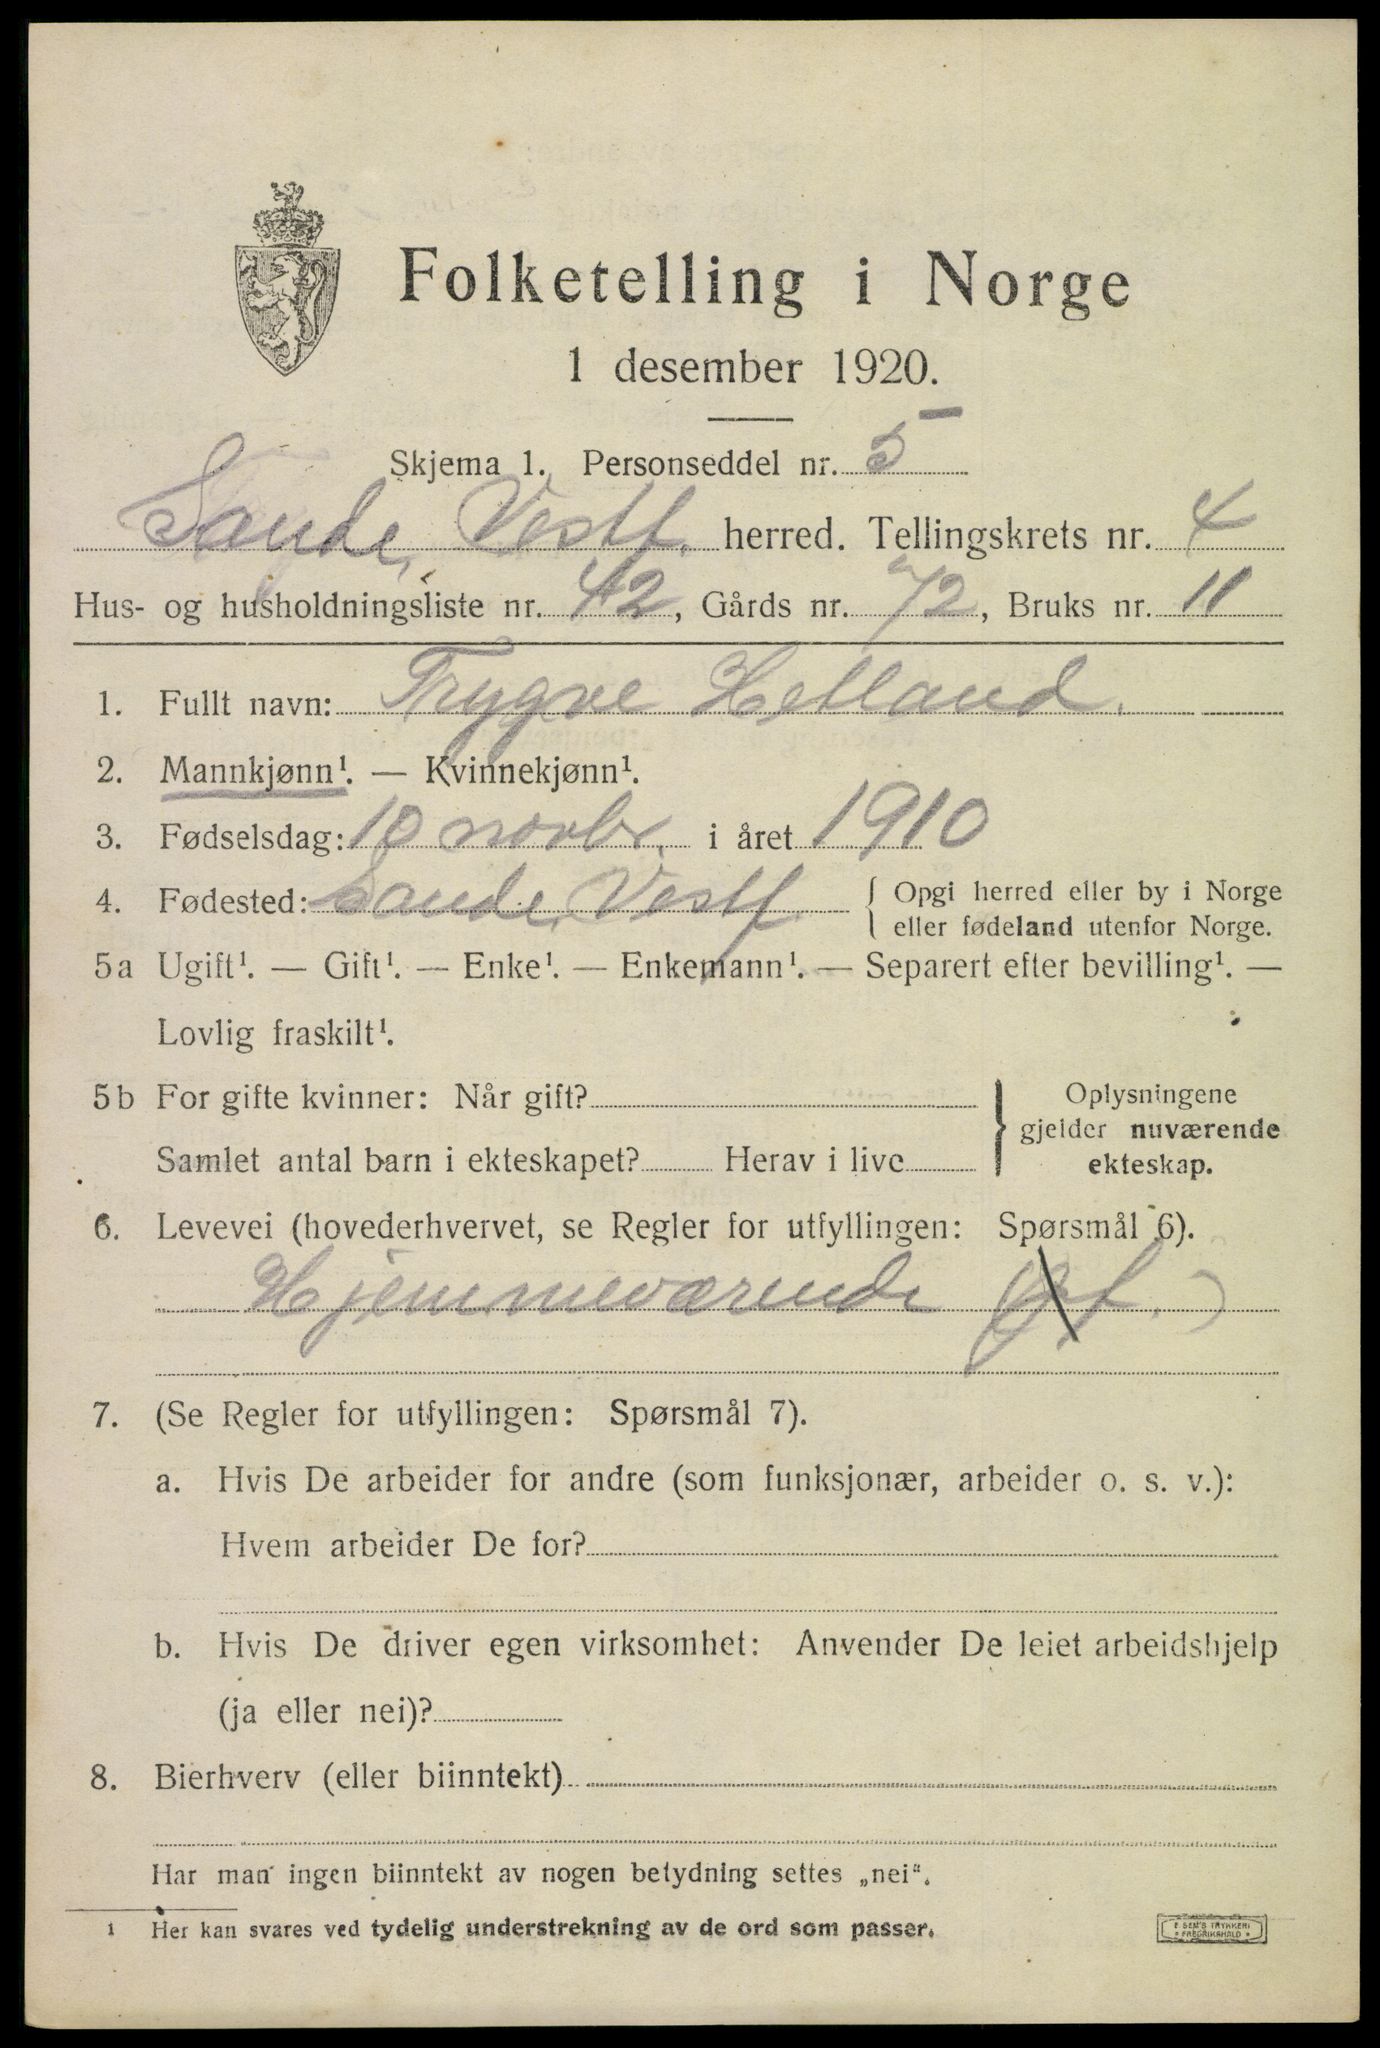 Folketelling i Norge
1 desember 1920.
Skjema 1. Personseddel nr. 5
Sande, Vestf. herred. Tellingskrets nr. 4
Hus- og husholdningsliste nr. 42, Gårds nr. 72, Bruks nr. 11
1. Fullt navn: Trygve Helland.
2. Mannkjønn¹. — Kvinnekjønn¹.
3. Fødselsdag: 10 novbr. i året 1910
4. Fødested: Sande, Vestf. { Opgi herred eller by i Norge
eller fødeland utenfor Norge.
5a Ugift¹. — Gift¹. — Enke¹. — Enkemann¹. — Separert efter bevilling¹. —
Lovlig fraskilt¹.
5b For gifte kvinner: Når gift?
Samlet antal barn i ekteskapet? Herav i live
} Oplysningene
gjelder nuværende
ekteskap.
6. Levevei (hovederhvervet, se Regler for utfyllingen: Spørsmål 6).
Hjemmeværende
7. (Se Regler for utfyllingen: Spørsmål 7).
a. Hvis De arbeider for andre (som funksjonær, arbeider o. s. v.):
Hvem arbeider De for?
b. Hvis De driver egen virksomhet: Anvender De leiet arbeidshjelp
(ja eller nei)?
8. Bierhverv (eller biinntekt)
Har man ingen biinntekt av nogen betydning settes „nei“.
1 Her kan svares ved tydelig understrekning av de ord som passer.
E SEM'S TRYKKERI
FREDRIKSHALD